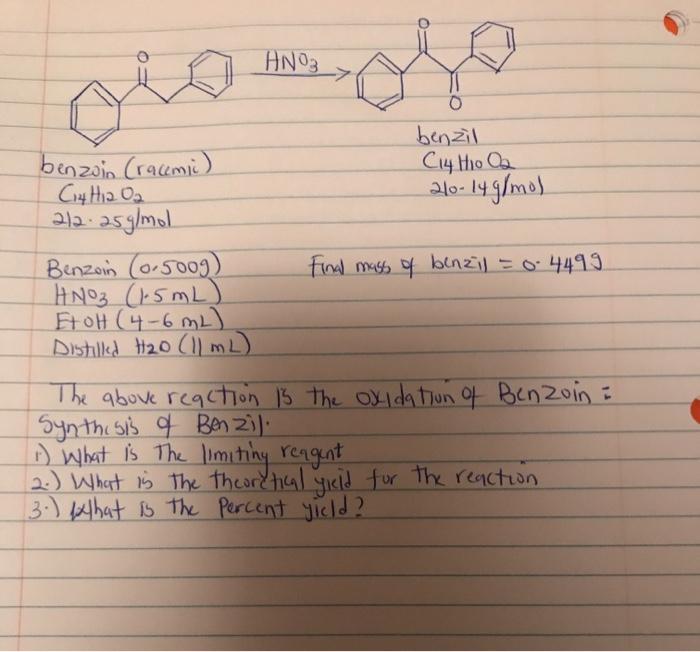 O
O
HNO3
O
benzoin (racemic)
C14H12O2
212.25g/mol
benzil
C14H10O2
210.14g/mol
Benzoin (0.500g)
Final mass of benzil = 0.449g
HNO3 (1.5mL)
EtOH (4-6mL)
Distilled H2O (11mL)
The above reaction is the oxidation of Benzoin :
Synthesis of Benzil.
1) What is The limiting reagent
2.) What is the theoretical yield for the reaction
3.) What is the Percent yield?